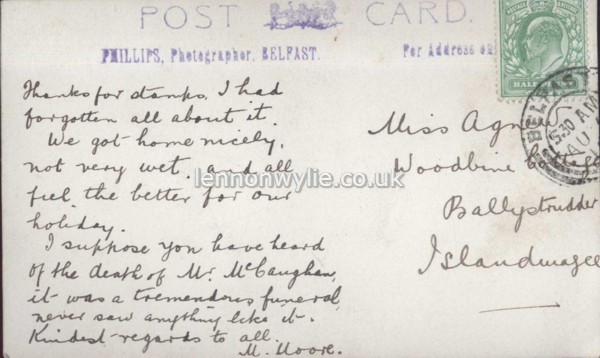 POST CARD.
PHILLIPS, Photographer, BELFAST.
For Address on
HALFPENNY
BELFAST
5.30 AM
AU
Thanks for stamps, I had
forgotten all about it.
We got home nicely,
not very wet, and all
feel the better for our
holiday.
I suppose you have heard
of the death of Mr. McCaughan,
it was a tremendous funeral,
never saw anything like it.
Kindest regards to all.
M. Moore.
Miss Agn
Woodbine
Ballystrudder
Islandmagee
lennonwylie.co.uk